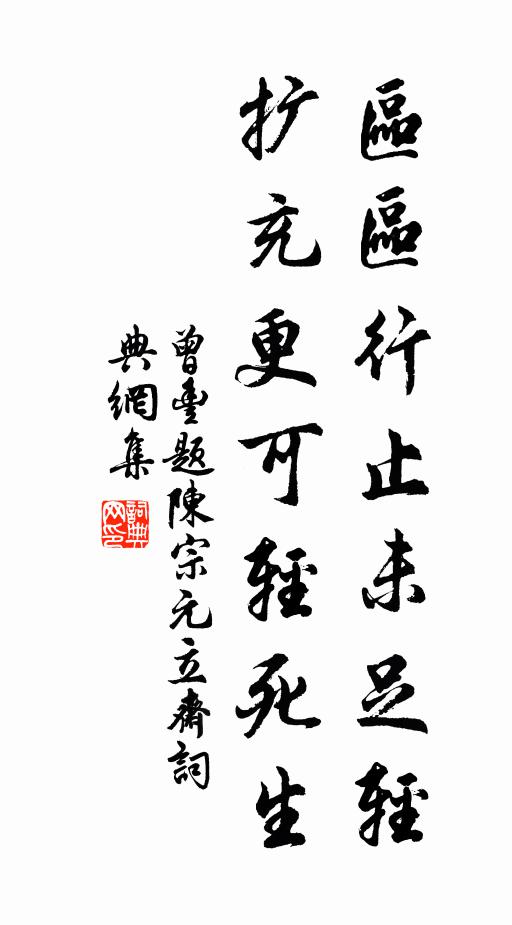 區區行止未足輕
扩充更可輕死生
曾豐題陳宗元立齋詞
典網集
詞典
网印